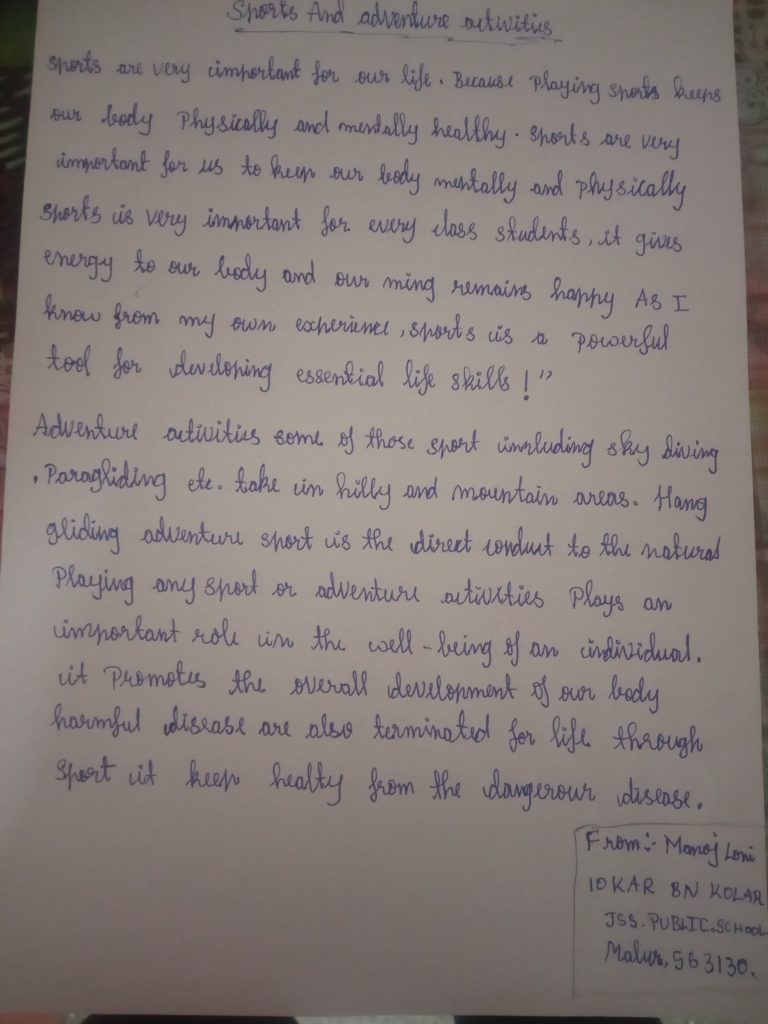 Sports And adventure activities
sports are very important for our life. Because Playing sports keeps
our body Physically and mentally healthy. sports are very
important for us to keep our body mentally and physically
sports is very important for every class students, it gives
energy to our body and our ming remains happy As I
know from my own experience, sports is a powerful
tool for developing essential life skills!"
Adventure activities some of those sport including sky diving
, Paragliding etc. take in hilly and mountain areas. Hang
gliding adventure sport is the direct conduct to the natural
Playing any sport or adventure activities Plays an
important role in the well-being of an individual.
it Promotes the overall development of our body
harmful disease are also terminated for life through
sport it keep healty from the dangerour disease.
From:- Manoj Loni
10 KAR BN KOLAR
JSS. PUBLIC. SCHOOL
Malur, 563130.